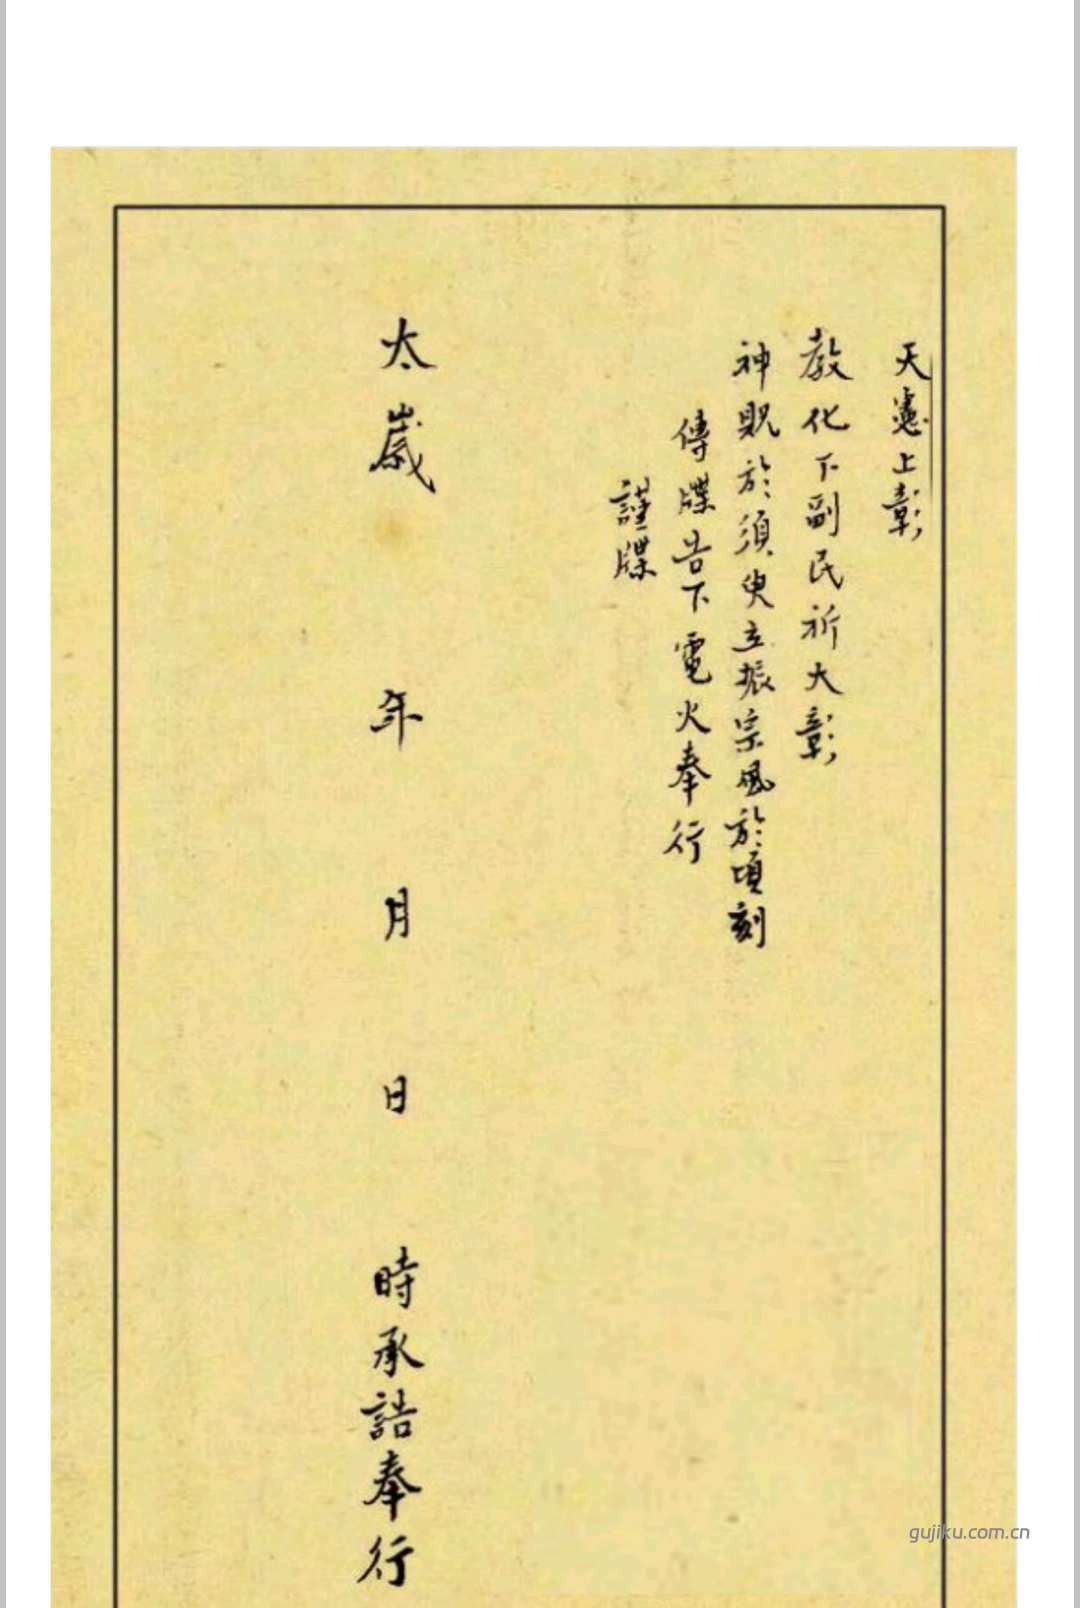 天憲上彰
教化下副民祈大彰
神貺於須臾立振宗風於頃刻
傳牒告下電火奉行
謹牒
太歲 年 月 日 時承誥奉行
gujiku.com.cn